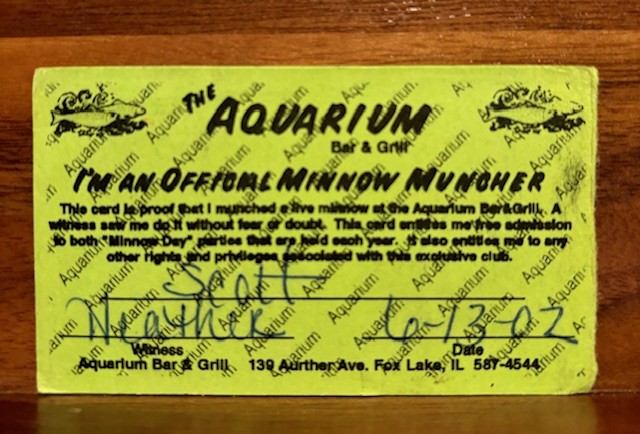 THE AQUARIUM
Bar & Grill
I'M AN OFFICIAL MINNOW MUNCHER
This card is proof that I munched a live minnow at the Aquarium Bar&Grill. A
witness saw me do it without fear or doubt. This card entitles me free admission
to both "Minnow Day" parties that are held each year. It also entitles me to any
other rights and privileges associated with this exclusive club.
Scott
Heather 6-13-02
Witness Date
Aquarium Bar & Grill 139 Aurther Ave. Fox Lake, IL 587-4544